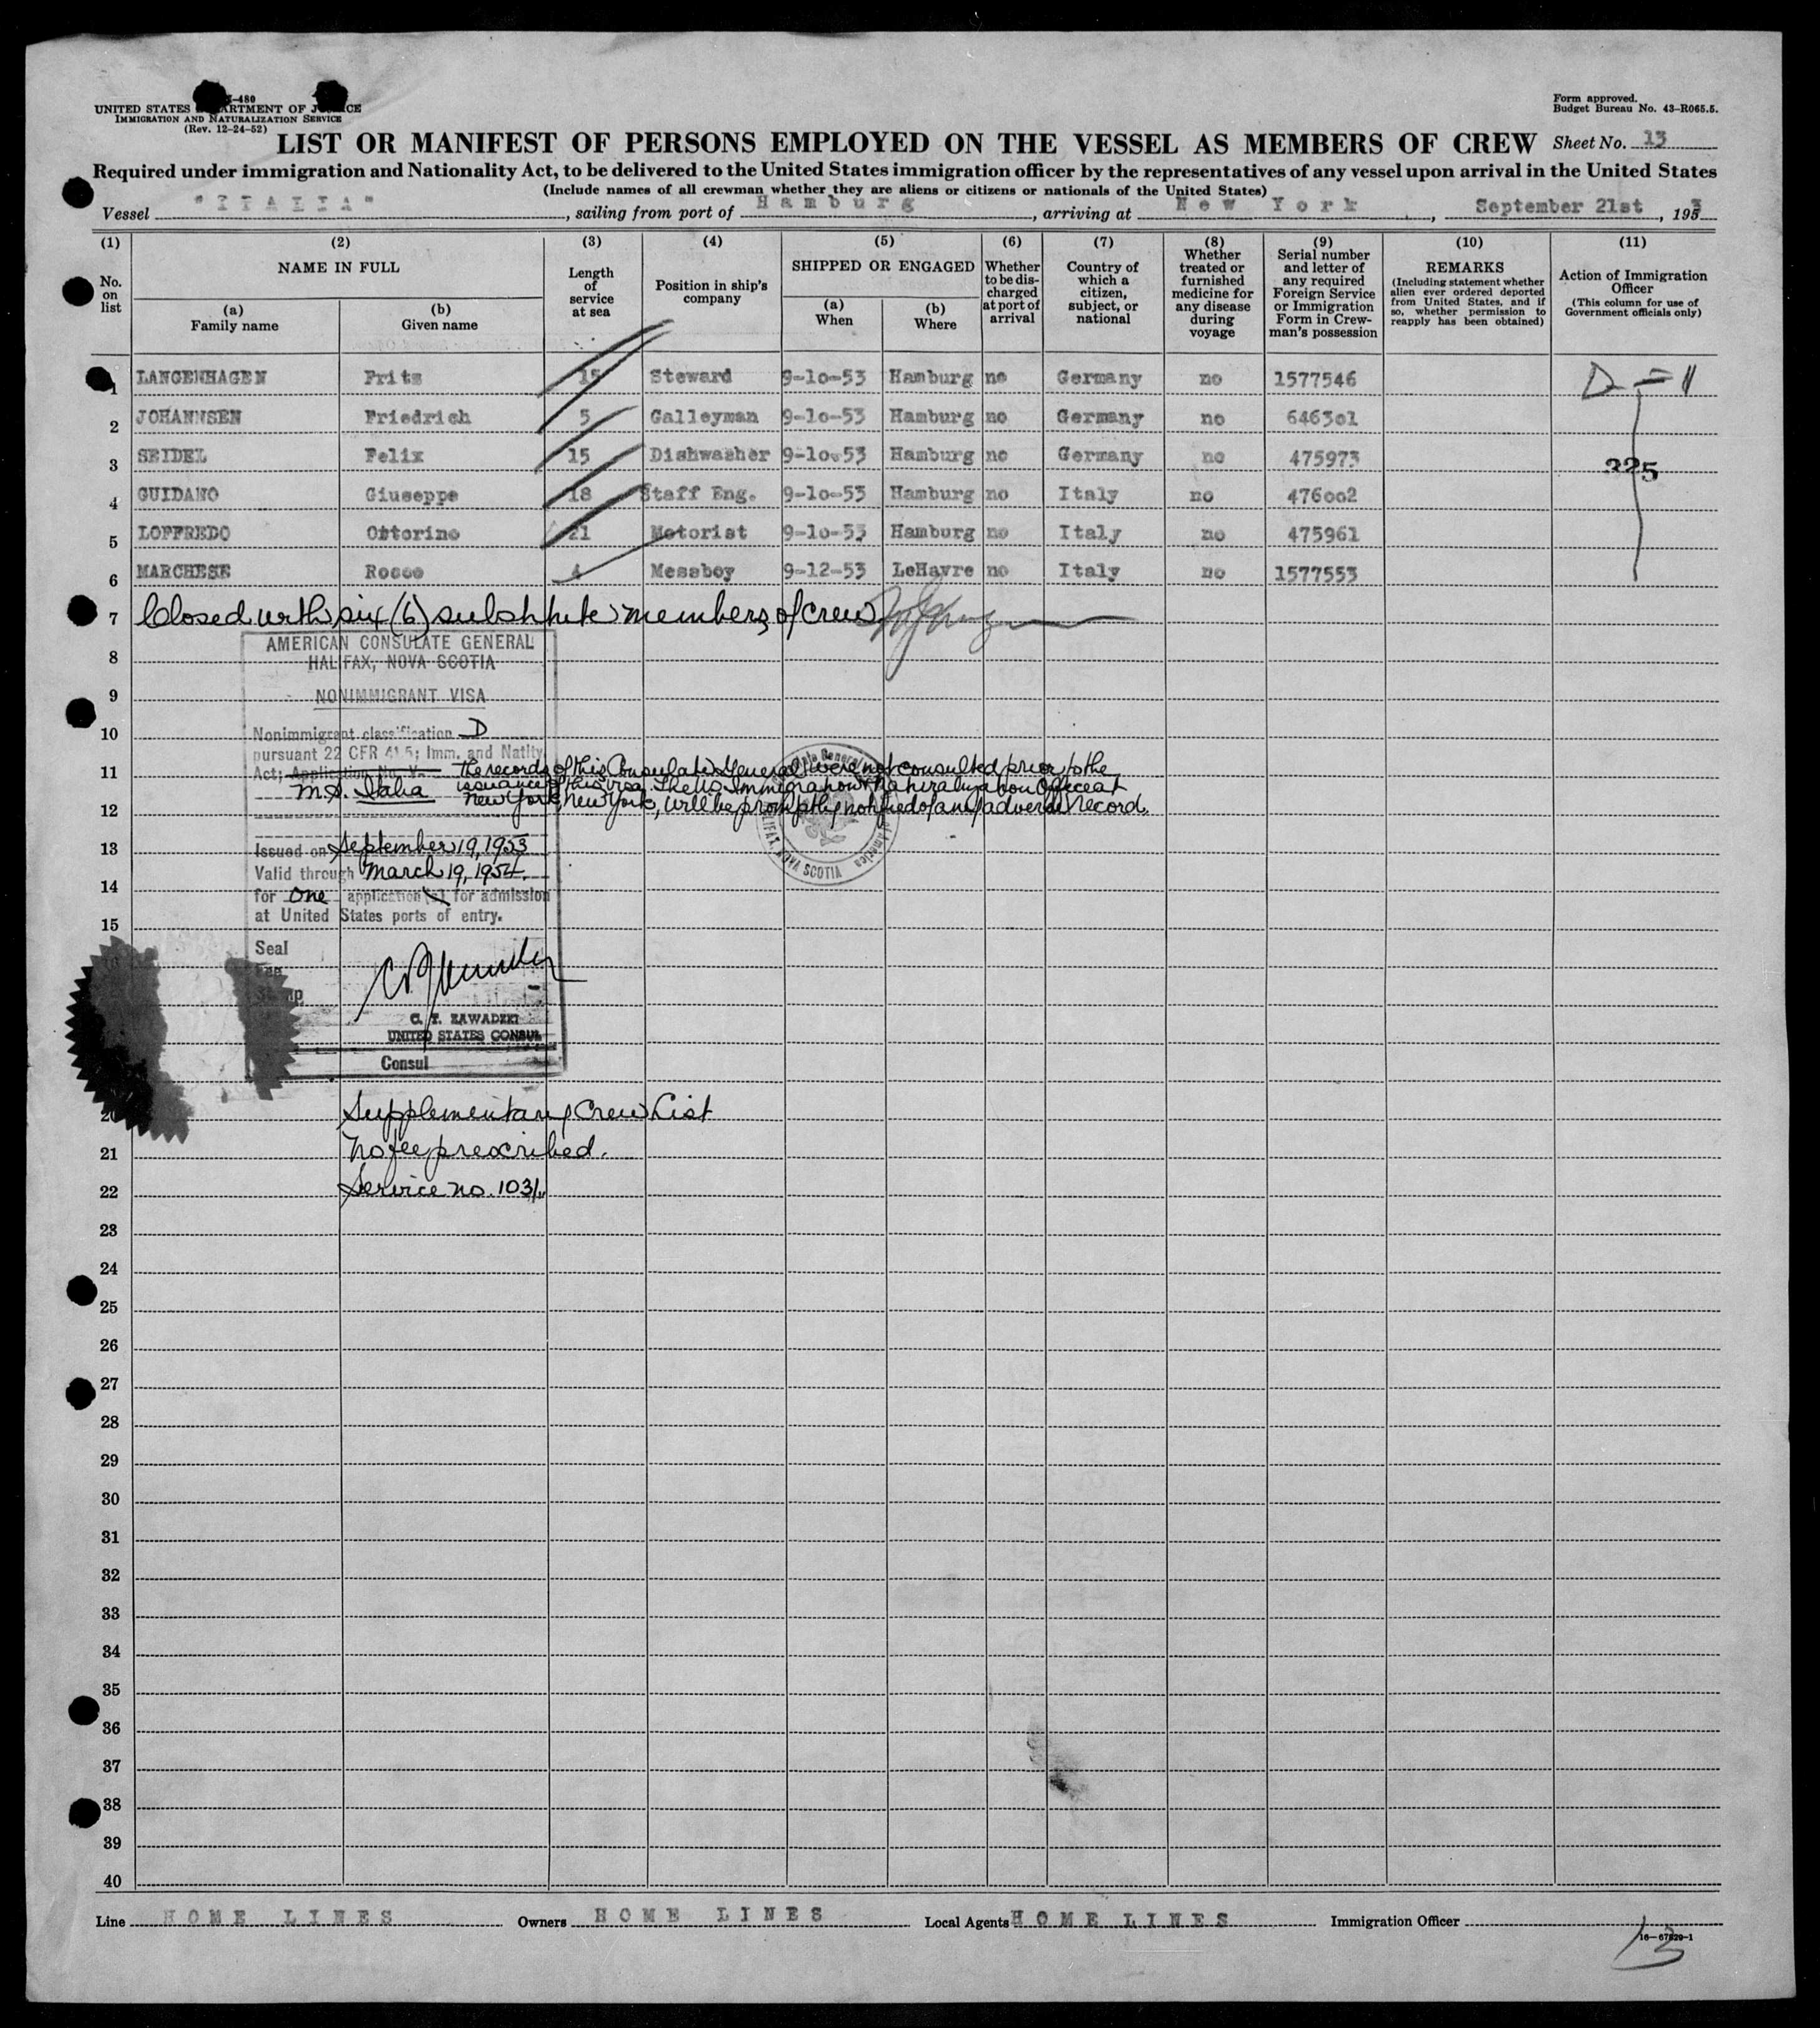 I-480
UNITED STATES DEPARTMENT OF JUSTICE
IMMIGRATION AND NATURALIZATION SERVICE
(Rev. 12-24-52)
Form approved.
Budget Bureau No. 43-R065.5.
LIST OR MANIFEST OF PERSONS EMPLOYED ON THE VESSEL AS MEMBERS OF CREW Sheet No. 13
Required under immigration and Nationality Act, to be delivered to the United States immigration officer by the representatives of any vessel upon arrival in the United States
(Include names of all crewman whether they are aliens or citizens or nationals of the United States)
Vessel "ITALIA", sailing from port of Hamburg, arriving at New York, September 21st, 1953
(1) No. on list
(2) NAME IN FULL
(a) Family name
(b) Given name
(3) Length of service at sea
(4) Position in ship's company
(5) SHIPPED OR ENGAGED
(a) When
(b) Where
(6) Whether to be discharged at port of arrival
(7) Country of which a citizen, subject, or national
(8) Whether treated or furnished medicine for any disease during voyage
(9) Serial number and letter of any required Foreign Service or Immigration Form in Crewman's possession
(10) REMARKS (Including statement whether alien ever ordered deported from United States, and if so, whether permission to reapply has been obtained)
(11) Action of Immigration Officer (This column for use of Government officials only)
1 LANGENHAGEN Fritz 15 Steward 9-10-53 Hamburg no Germany no 1577546 D-11
2 JOHANNSEN Friedrich 5 Galleyman 9-10-53 Hamburg no Germany no 646301
3 SEIDEL Felix 15 Dishwasher 9-10-53 Hamburg no Germany no 475973 325
4 GUIDANO Giuseppe 18 Staff Eng. 9-10-53 Hamburg no Italy no 476002
5 LOFFREDO Ottorino 21 Motorist 9-10-53 Hamburg no Italy no 475961
6 MARCHESE Rosco 4 Messboy 9-12-53 LeHavre no Italy no 1577553
7 Closed with six (6) substitute members of crew
8
9
10
11
12
13
14
15
AMERICAN CONSULATE GENERAL
HALIFAX, NOVA SCOTIA
NONIMMIGRANT VISA
Nonimmigrant classification D
pursuant 22 CFR 41.5; Imm. and Natlty
Act; Application No. V- The records of this Consulate General were not consulted prior to the
M.S. Italia issuance of this visa. The U.S. Immigration & Naturalization Office at
New York, New York, will be promptly notified of any adverse record.
Issued on September 19, 1953
Valid through March 19, 1954.
for one application(s) for admission
at United States ports of entry.
Seal
Fee
Stamp
C. T. ZAWADZKI
UNITED STATES CONSUL
Consul
HALIFAX, NOVA SCOTIA
20 Supplementary Crew List
21 No fee prescribed.
22 Service no. 1031
23
24
25
26
27
28
29
30
31
32
33
34
35
36
37
38
39
40
Line HOME LINES Owners HOME LINES Local Agents HOME LINES Immigration Officer
16-67829-1
13